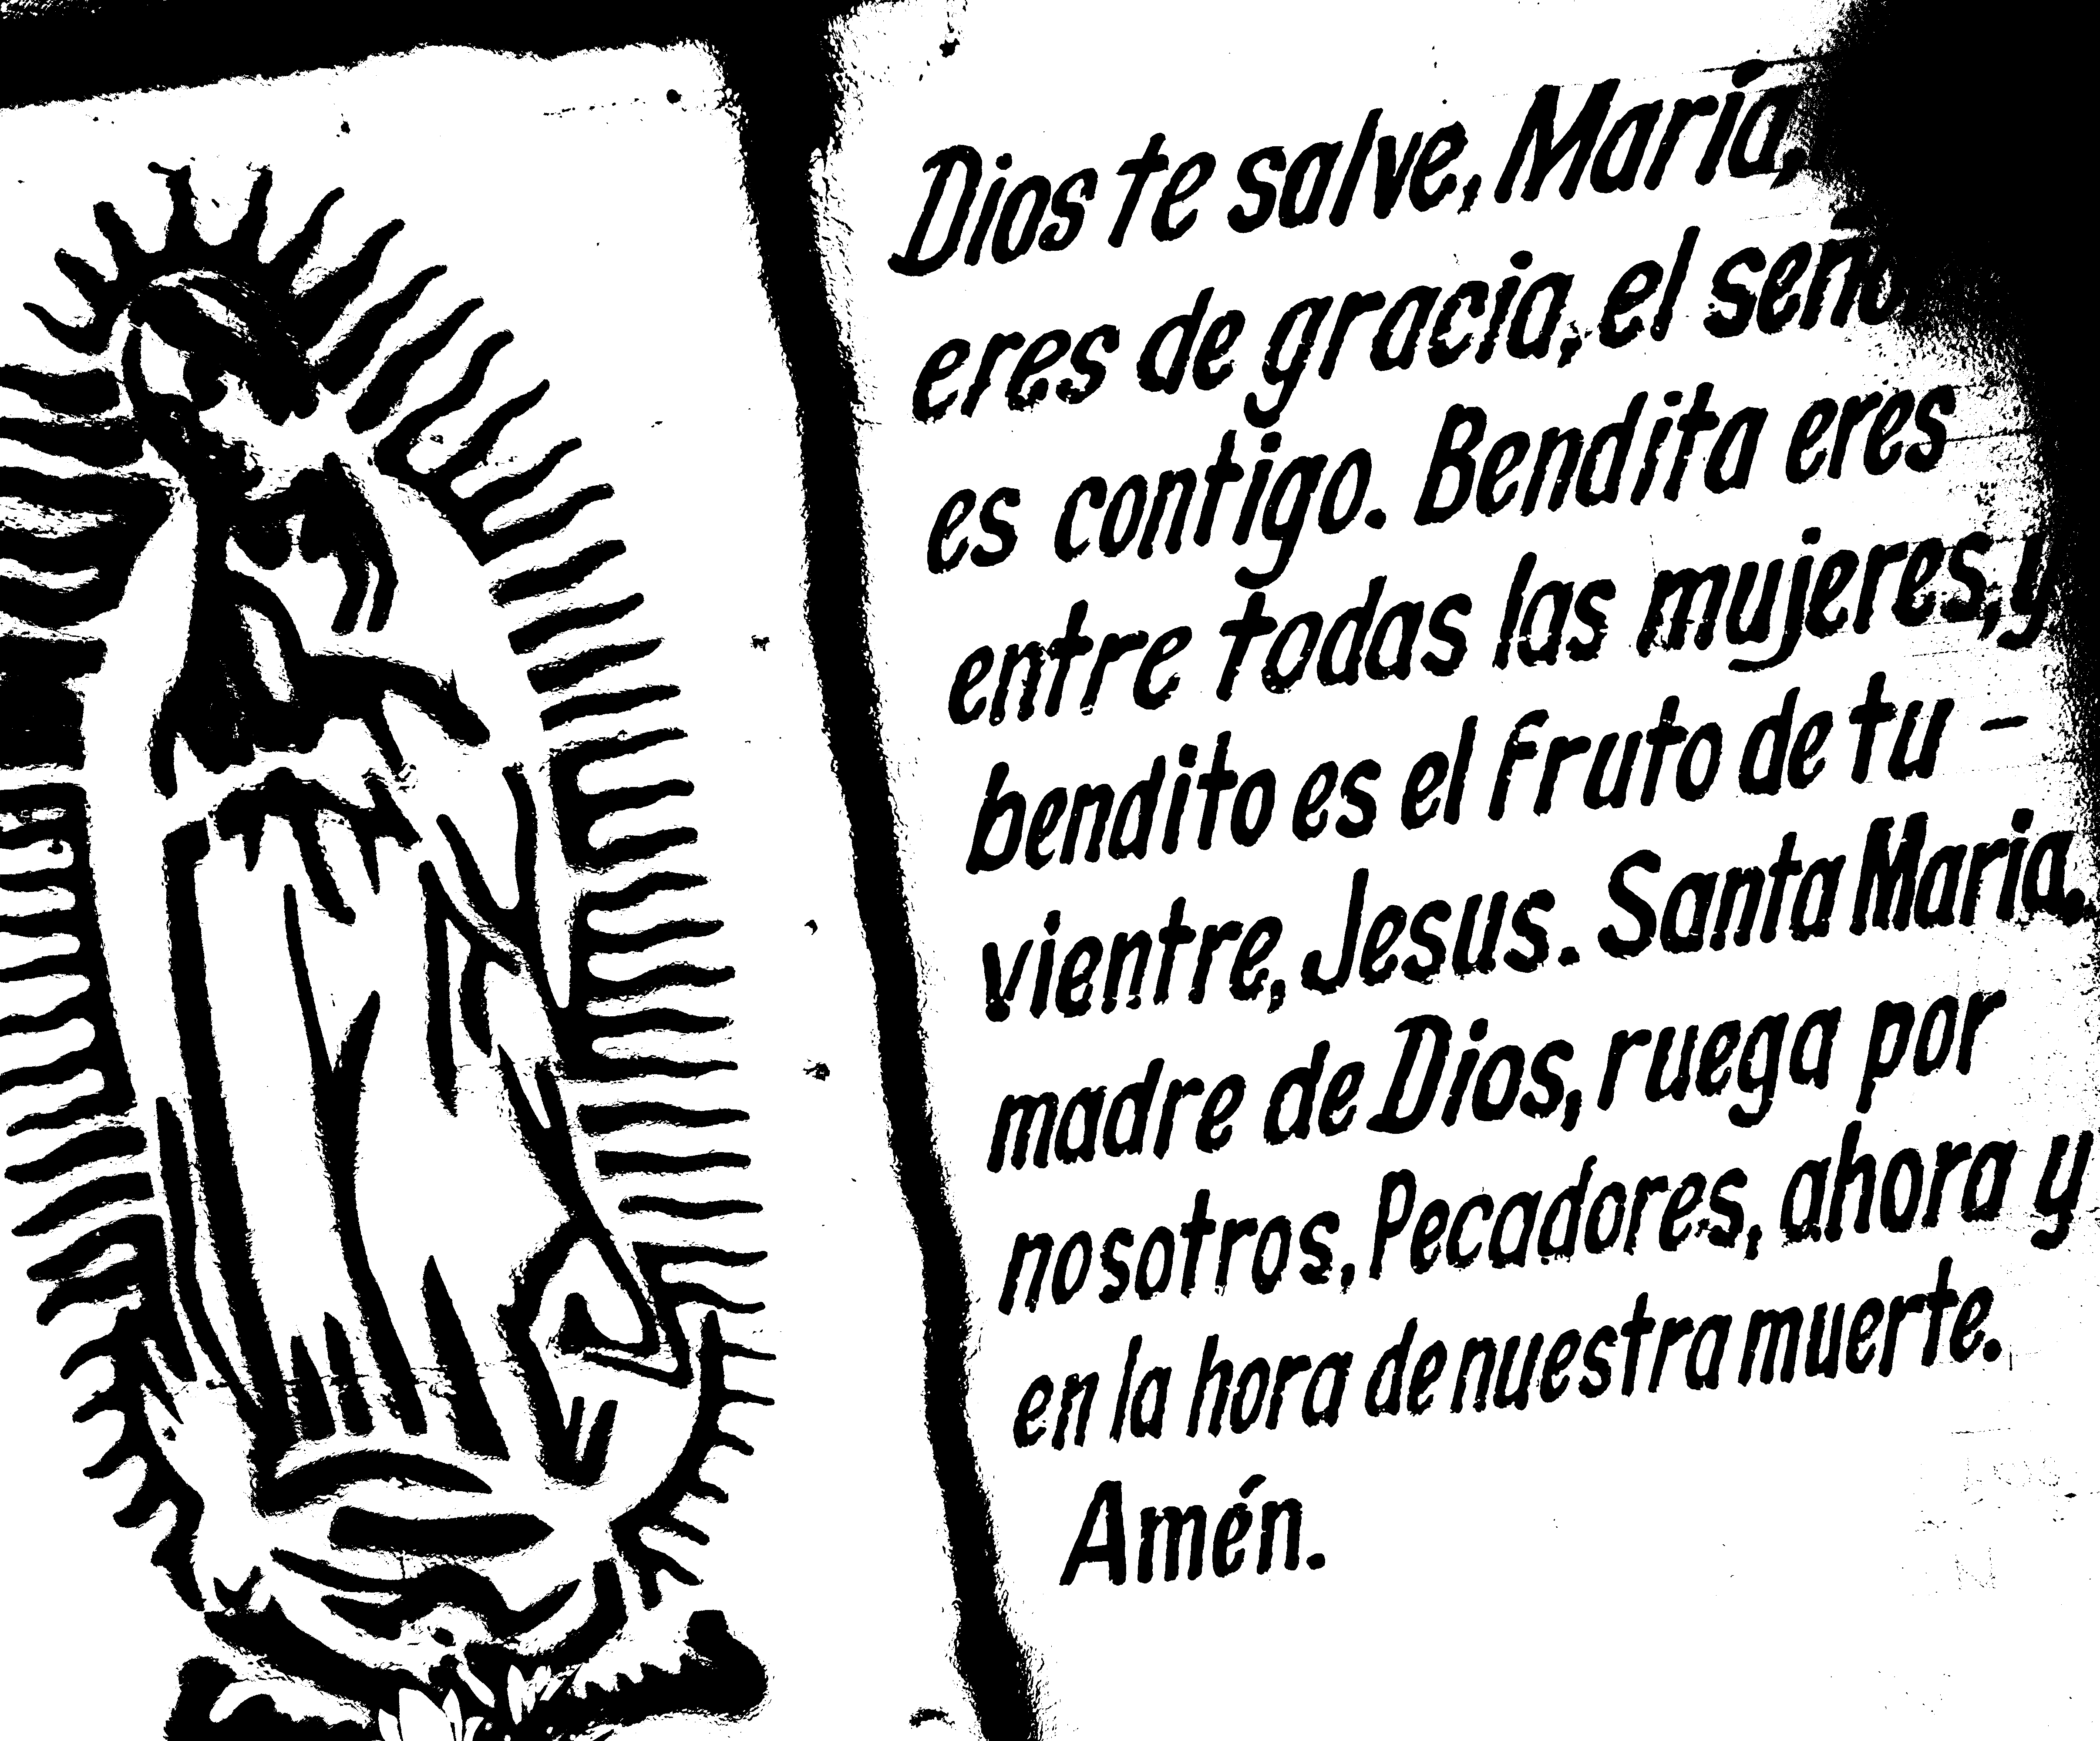 Dios te salve, María,
eres de gracia, el
es contigo. Bendita eres
entre todas las mujeres, y
bendito es el fruto de tu -
vientre, Jesus. Santa Maria.
madre de Dios, ruega por
nosotros, Pecadores, ahora y
en la hora de nuestra muerte.
Amén.